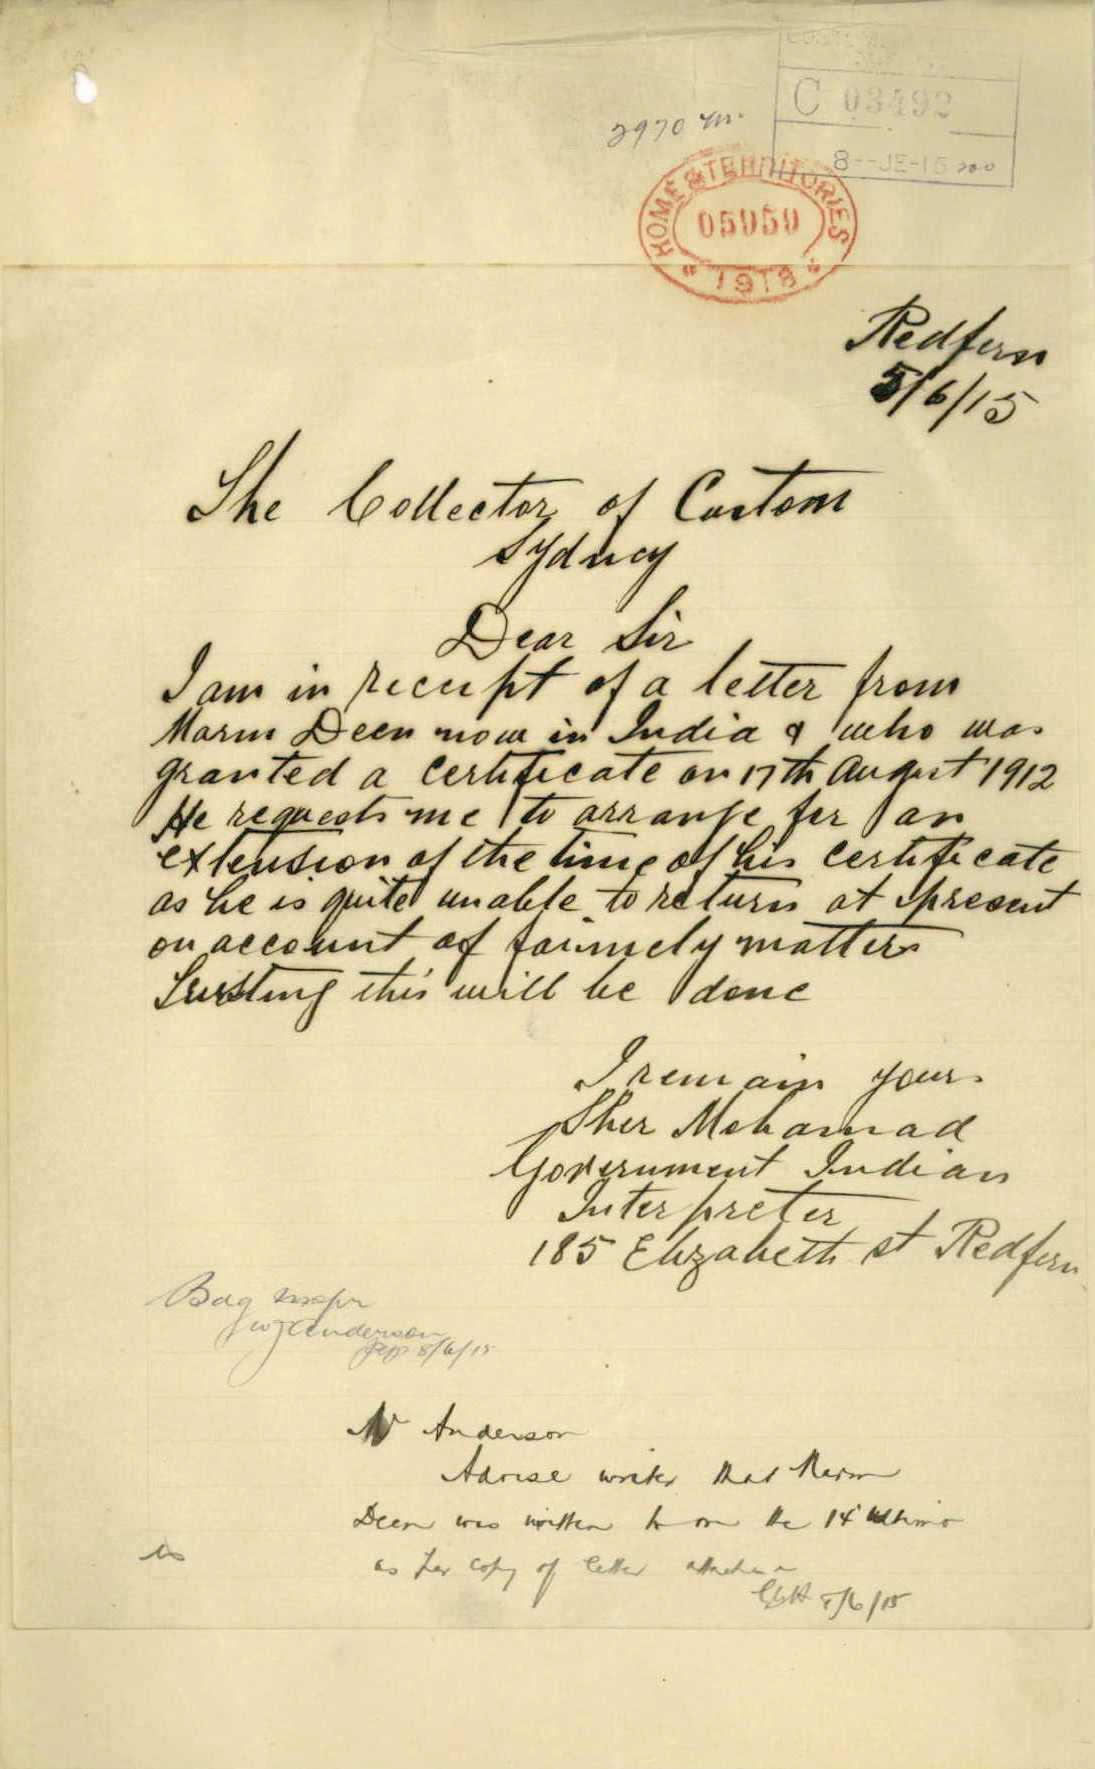 2970
C 03492
8--JE-15
HOME & TERRITORIES
05959
1918
Redfern
5/6/15
The Collector of Custom
Sydney
Dear Sir
I am in receipt of a letter from
Marm Deen now in India & who was
granted a certificate on 17th August 1912
He requests me to arrange for an
extension of the time of his certificate
as he is quite unable to return at present
on account of faimely matters
Trusting this will be done
I remain yours
Sher Mohamad
Government Indian
Interpreter
185 Elizabeth st Redfern
Bag Inspr
WJ Anderson
8/6/15
Mr Anderson
Advise writer that Marm
Deen was written to on the 14th ultimo
as per copy of letter attached
8/6/15